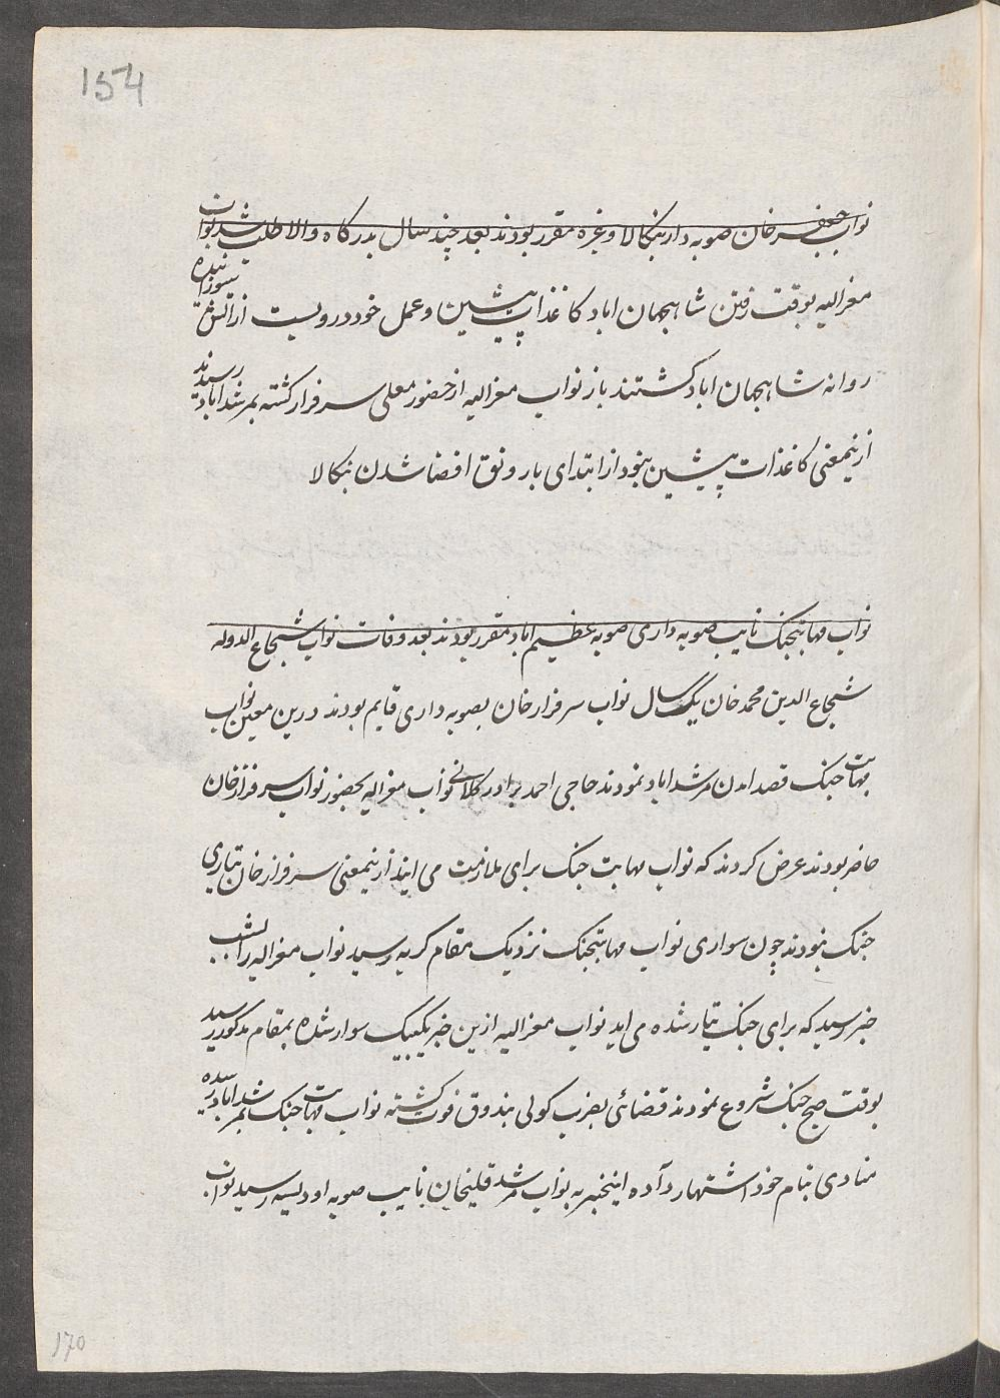 154
نواب جعفر خان صوبه دار بنکالا وغیره مقرر بودند بعد چند سال بدرکاه والا طلب شد نواب
معزالیه بوقت رفتن شاهجهان اباد کاغذات پیشین و عمل خود در و بست از اتش سوزانیده
روانه شاهجهان اباد کشتند باز نواب معزالیه از حضور معلی سرفراز کشته بمرشداباد رسیدند
ازینمعنی کاغذات پیشین بنود از ابتدای بار و نق افضا شدن بنکالا
نواب مهابتجنک نایب صوبه داری صوبه عظیم اباد مقرر بودند بعد وفات نواب شجاع الدوله
شجاع الدین محمد خان یکسال نواب سرفراز خان بصوبه داری قایم بودند درین معین نواب
مهابت جنک قصد امدن مرشداباد نمودند حاجی احمد برادر کلانی نواب معزالیه بحضور نواب سرفراز خان
حاضر بودند عرض کردند که نواب مهابت جنک برای ملازمت می ایند ازینمعنی سرفراز خان تیاری
جنک نبودند چون سواری نواب مهابتجنک نزدیک مقام کریه رسید نواب معزالیه را
خبر رسید که برای جنک تیار شده می اید نواب معزالیه ازین خبر یکبیک سوار شده بمقام مذکور رسید
بوقت صبح جنک شروع نمودند قضائی بضرب کولی بندوق فوت کشته نواب مهابت جنک بمرشداباد رسیده
منادی بنام خود اشتهار دآده اینخبر به نواب مرشد قلیخان نایب صوبه اودیسه رسید نواب
170